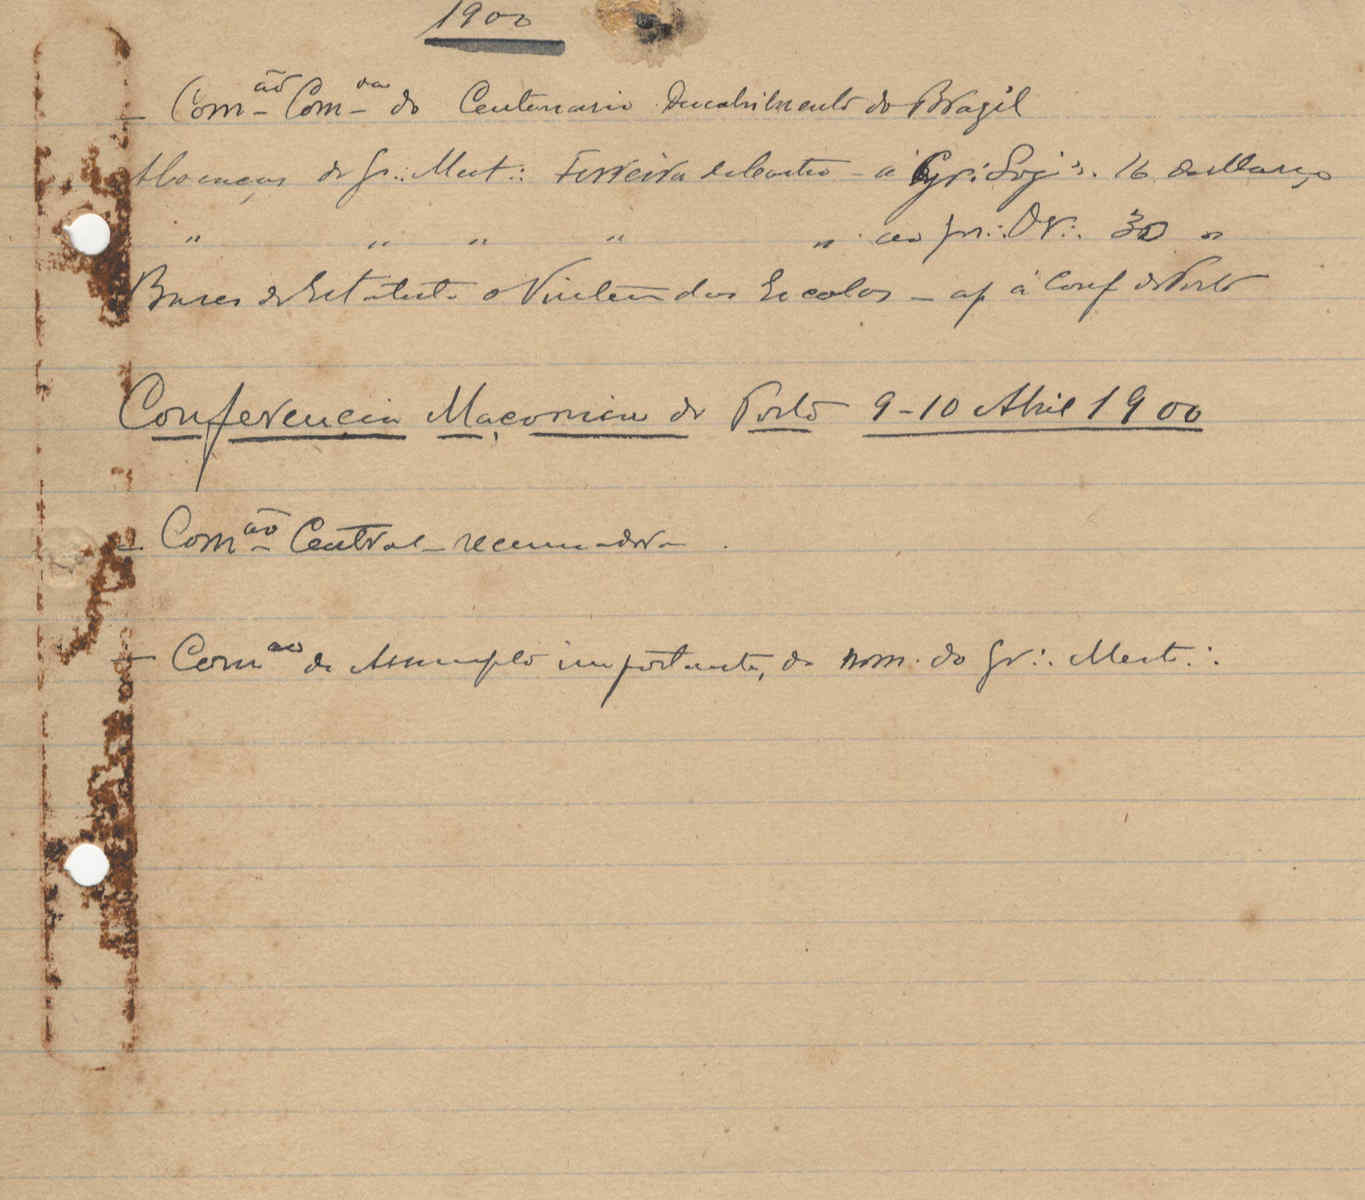 1900
— Com.ão Com.va do Centenario Descobrimento do Brazil
Allocuçao do Gr∴ Mest∴ Ferreira de Castro – á Gr∴ Loj∴ 16 de Março
" " " " " ao Gr∴ Or∴ 30 "
Bases do Estatuto o Vintem das Escolas – ap á Conf do Porto
Conferencia Maçonica do Porto 9-10 Abril 1900
— Com.ão Central
— Com.ão de Assumpto importante, de nom. do Gr∴ Mest∴